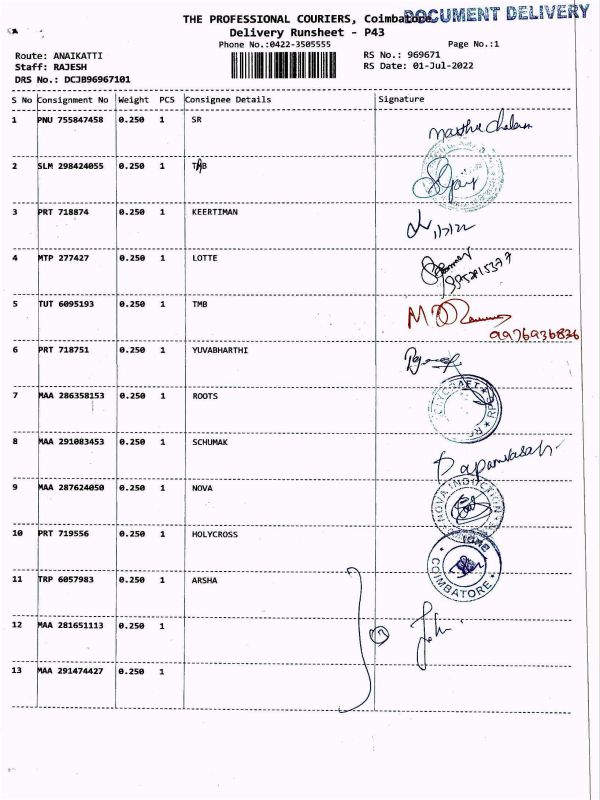 THE PROFESSIONAL COURIERS, Coimbatore
DOCUMENT DELIVERY
Delivery Runsheet - P43
Phone No.:0422-3505555 Page No.:1
Route: ANAIKATTI RS No.: 969671
Staff: RAJESH RS Date: 01-Jul-2022
DRS No.: DCJB96967101
S No Consignment No Weight PCS Consignee Details Signature
1 PNU 755847458 0.250 1 SR
2 SLM 298424055 0.250 1 TAB
3 PRT 718874 0.250 1 KEERTIMAN
4 MTP 277427 0.250 1 LOTTE
5 TUT 6095193 0.250 1 TMB
9976936836
6 PRT 718751 0.250 1 YUVABHARTHI
7 MAA 286358153 0.250 1 ROOTS
8 MAA 291083453 0.250 1 SCHUMAK
9 MAA 287624050 0.250 1 NOVA
NOVA INDUCTION
10 PRT 719556 0.250 1 HOLYCROSS
COIMBATORE
11 TRP 6057983 0.250 1 ARSHA
12 MAA 281651113 0.250 1
13 MAA 291474427 0.250 1